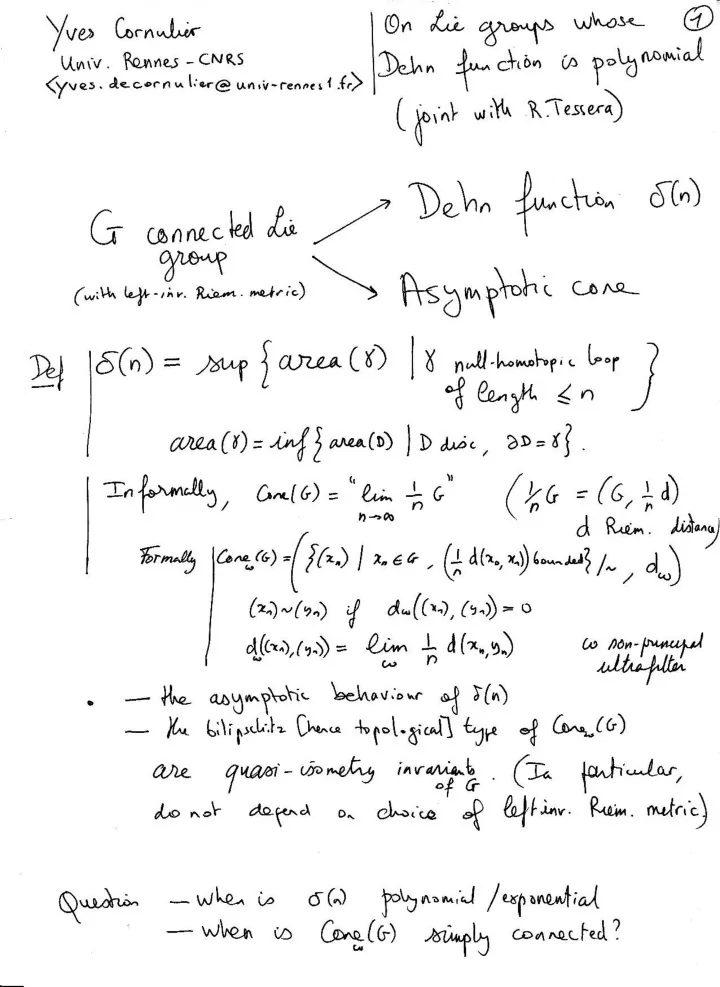 Yves Cornulier
Univ. Rennes - CNRS
<yves.decornulier@univ-rennes1.fr>
On Lie groups whose
Dehn function is polynomial
(joint with R. Tessera)
①
G connected Lie
group
(with left-inv. Riem. metric)
Dehn function δ(n)
Asymptotic cone
Def δ(n) = sup { area(γ) | γ null-homotopic loop
of length ≤ n }
area(γ) = inf { area(D) | D disc, ∂D = γ }.
Informally, Cone(G) = "lim 1/n G" (1/n G = (G, 1/n d)
n→∞
d Riem. distance)
Formally Cone_ω(G) = ({(xn) | xn ∈ G, (1/n d(x0, xn)) bounded}/~, dω)
(xn) ~ (yn) if dω((xn), (yn)) = 0
dω((xn), (yn)) = lim_ω 1/n d(xn, yn)
ω non-principal
ultrafilter
• — the asymptotic behaviour of δ(n)
— the bilipschitz [hence topological] type of Cone_ω(G)
are quasi-isometry invariants of G. (In particular,
do not depend on choice of left inv. Riem. metric)
Question — when is δ(n) polynomial/exponential
— when is Cone_ω(G) simply connected?